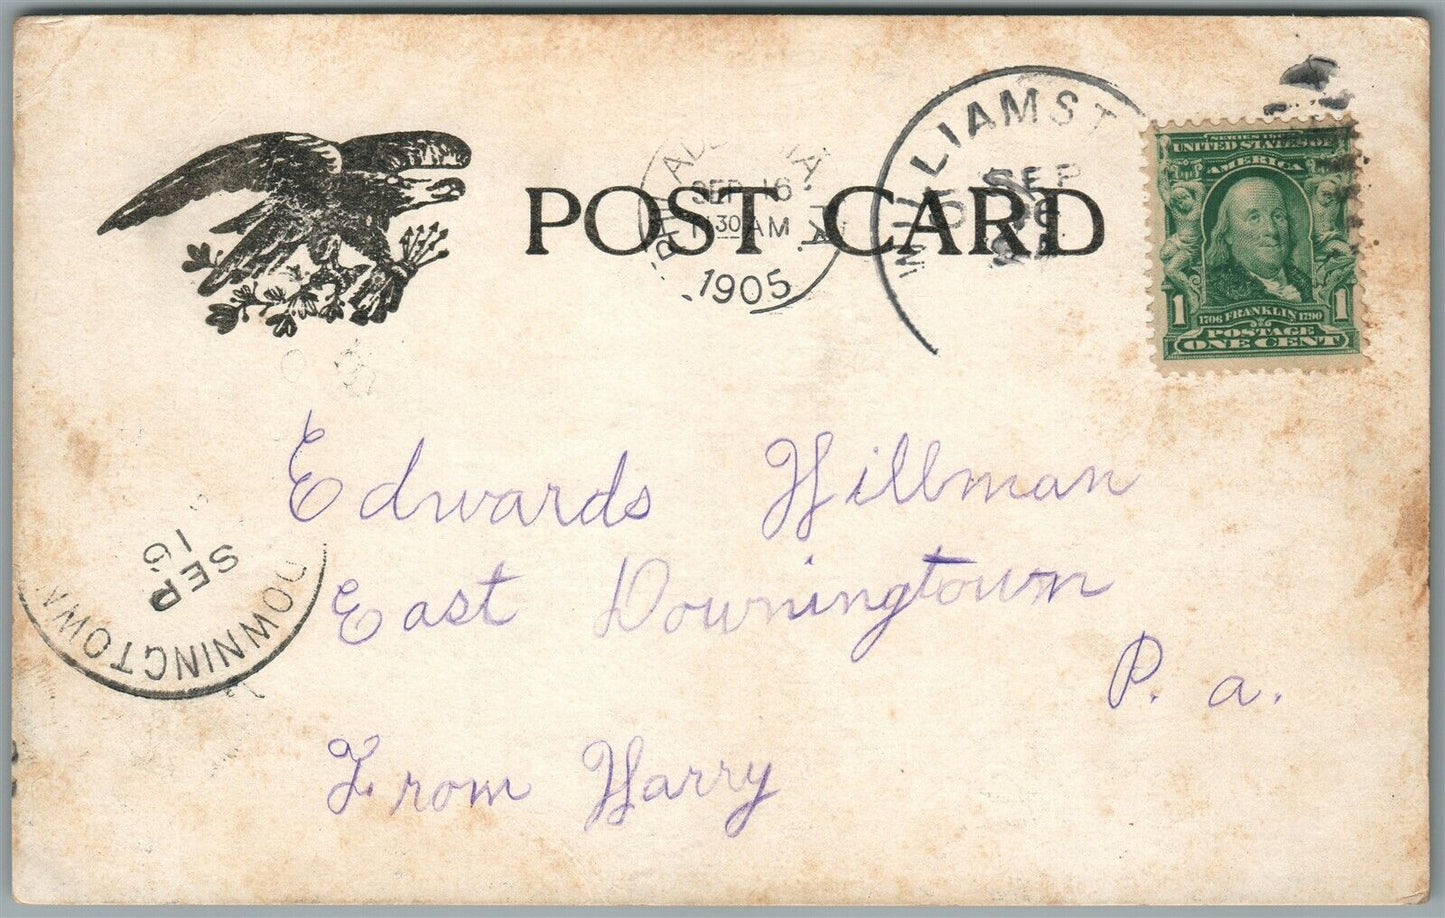 POST CARD
PHILADELPHIA, PA.
SEP 16
1 30 AM
1905
WILLIAMST
SEP
SERIES 1902
UNITED STATES OF
AMERICA
1 1
1706 FRANKLIN 1790
POSTAGE
ONE CENT
Edwards Hillman
East Downingtown
P. a.
From Harry
DOWNINGTOWN
SEP
16